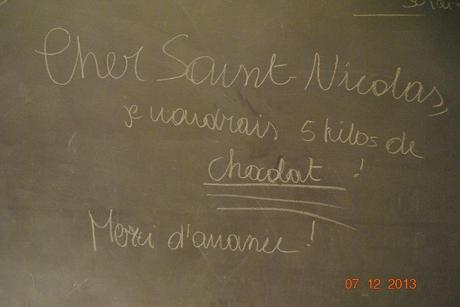 Cher Saint-Nicolas,
je voudrais 5 kilos de
chocolat !
Merci d'avance !
07 12 2013